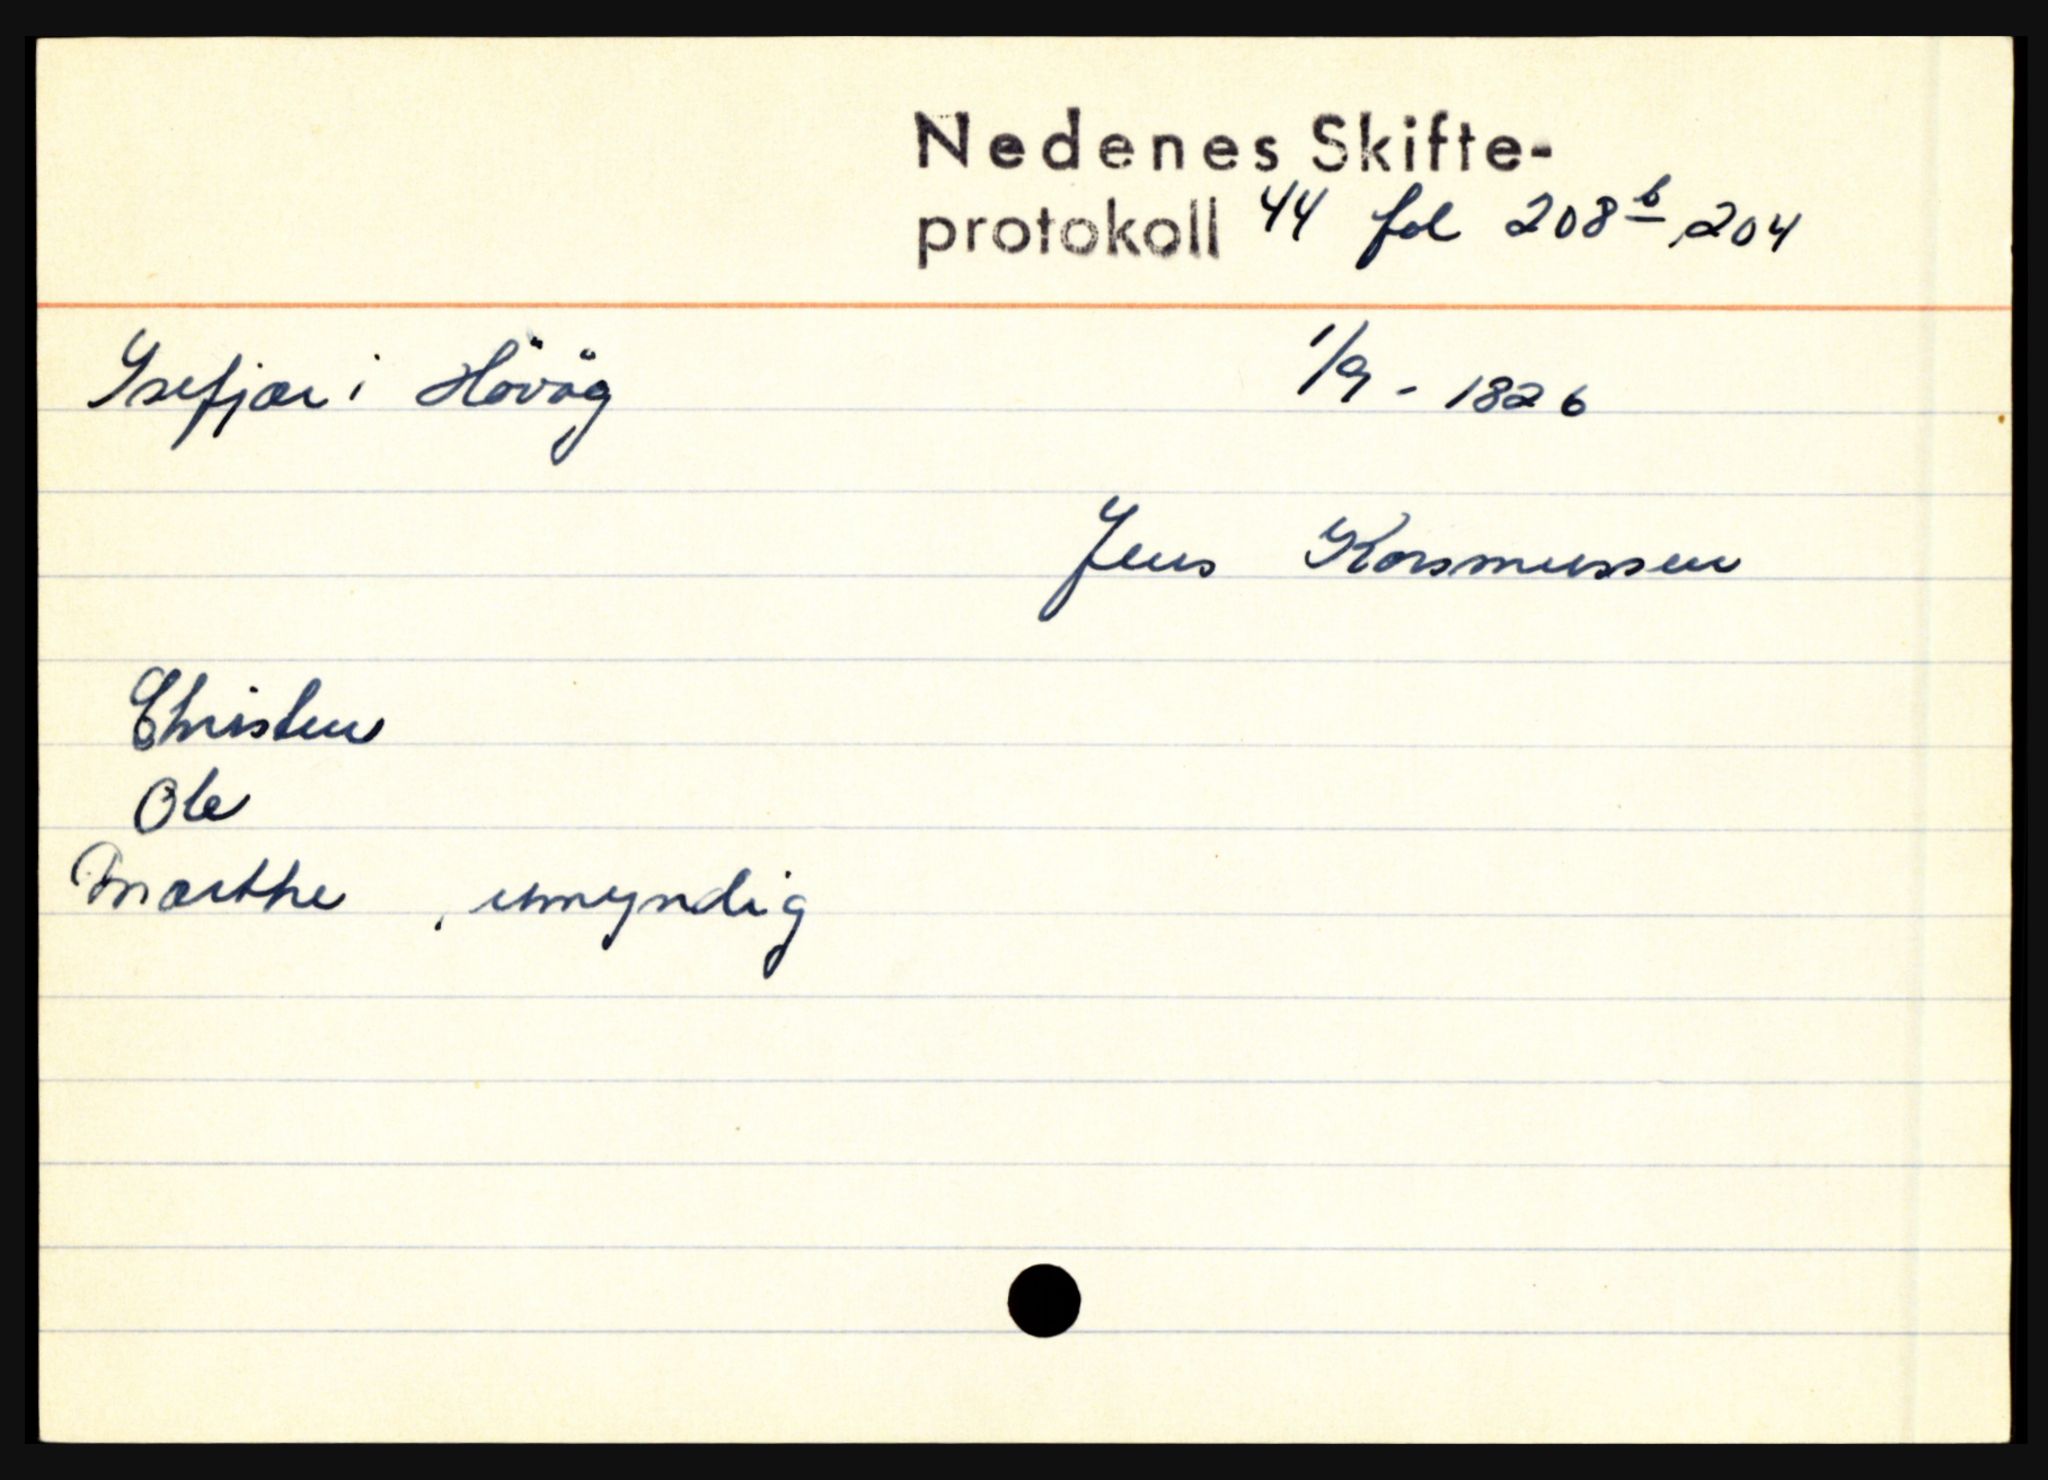 Nedenes Skifte-
protokoll 44 fol 208b, 204
Isefjær i Høvåg 1/9 - 1826
Jens Korsmussen
Christen
Ole
Marthe , umyndig